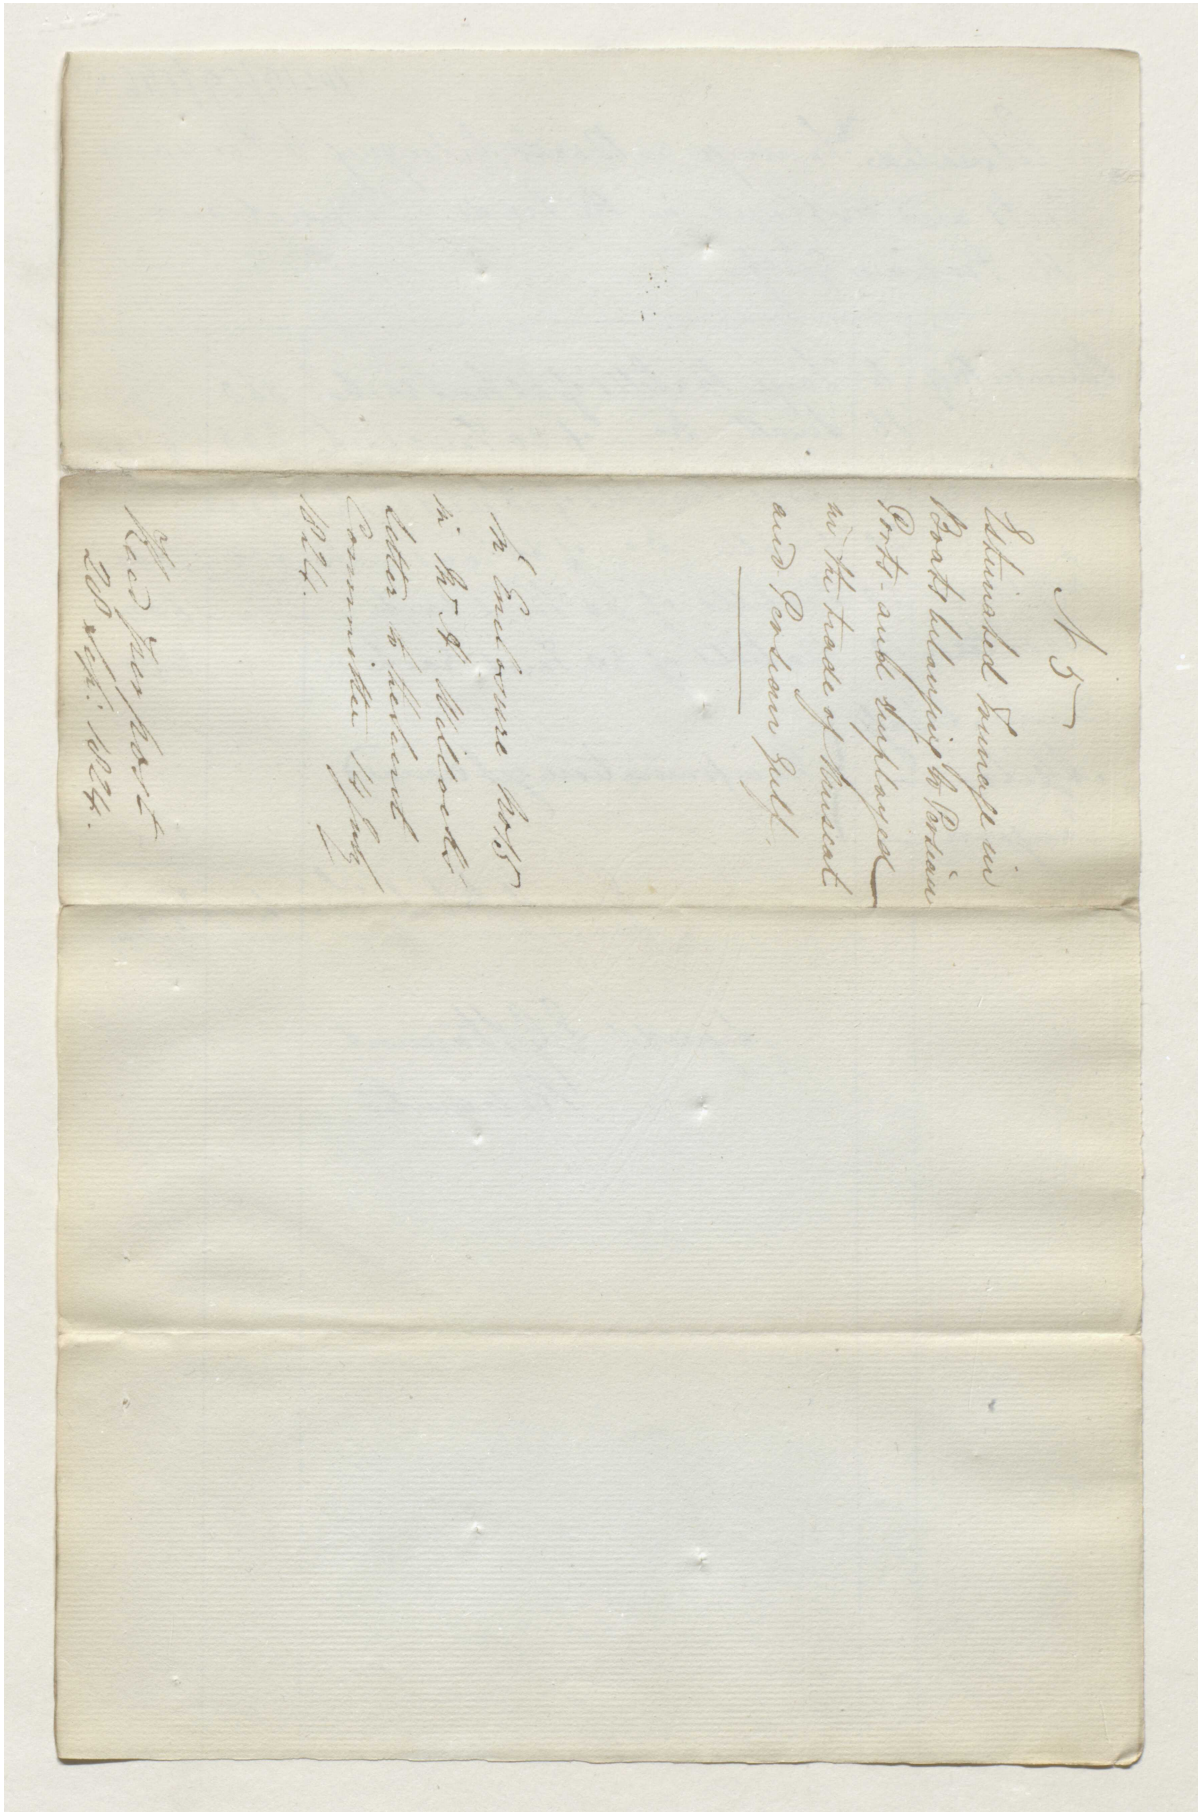 N 5
Estimated Tonnage in
Boats belonging to Persian
Ports and employed
in the trade of Muscat
and Persian Gulf.
In Enclosure No 5
in Mr H Willock's
letter to Secret
Committee 14 July
1824.
Recd per post
28 Sept: 1824.